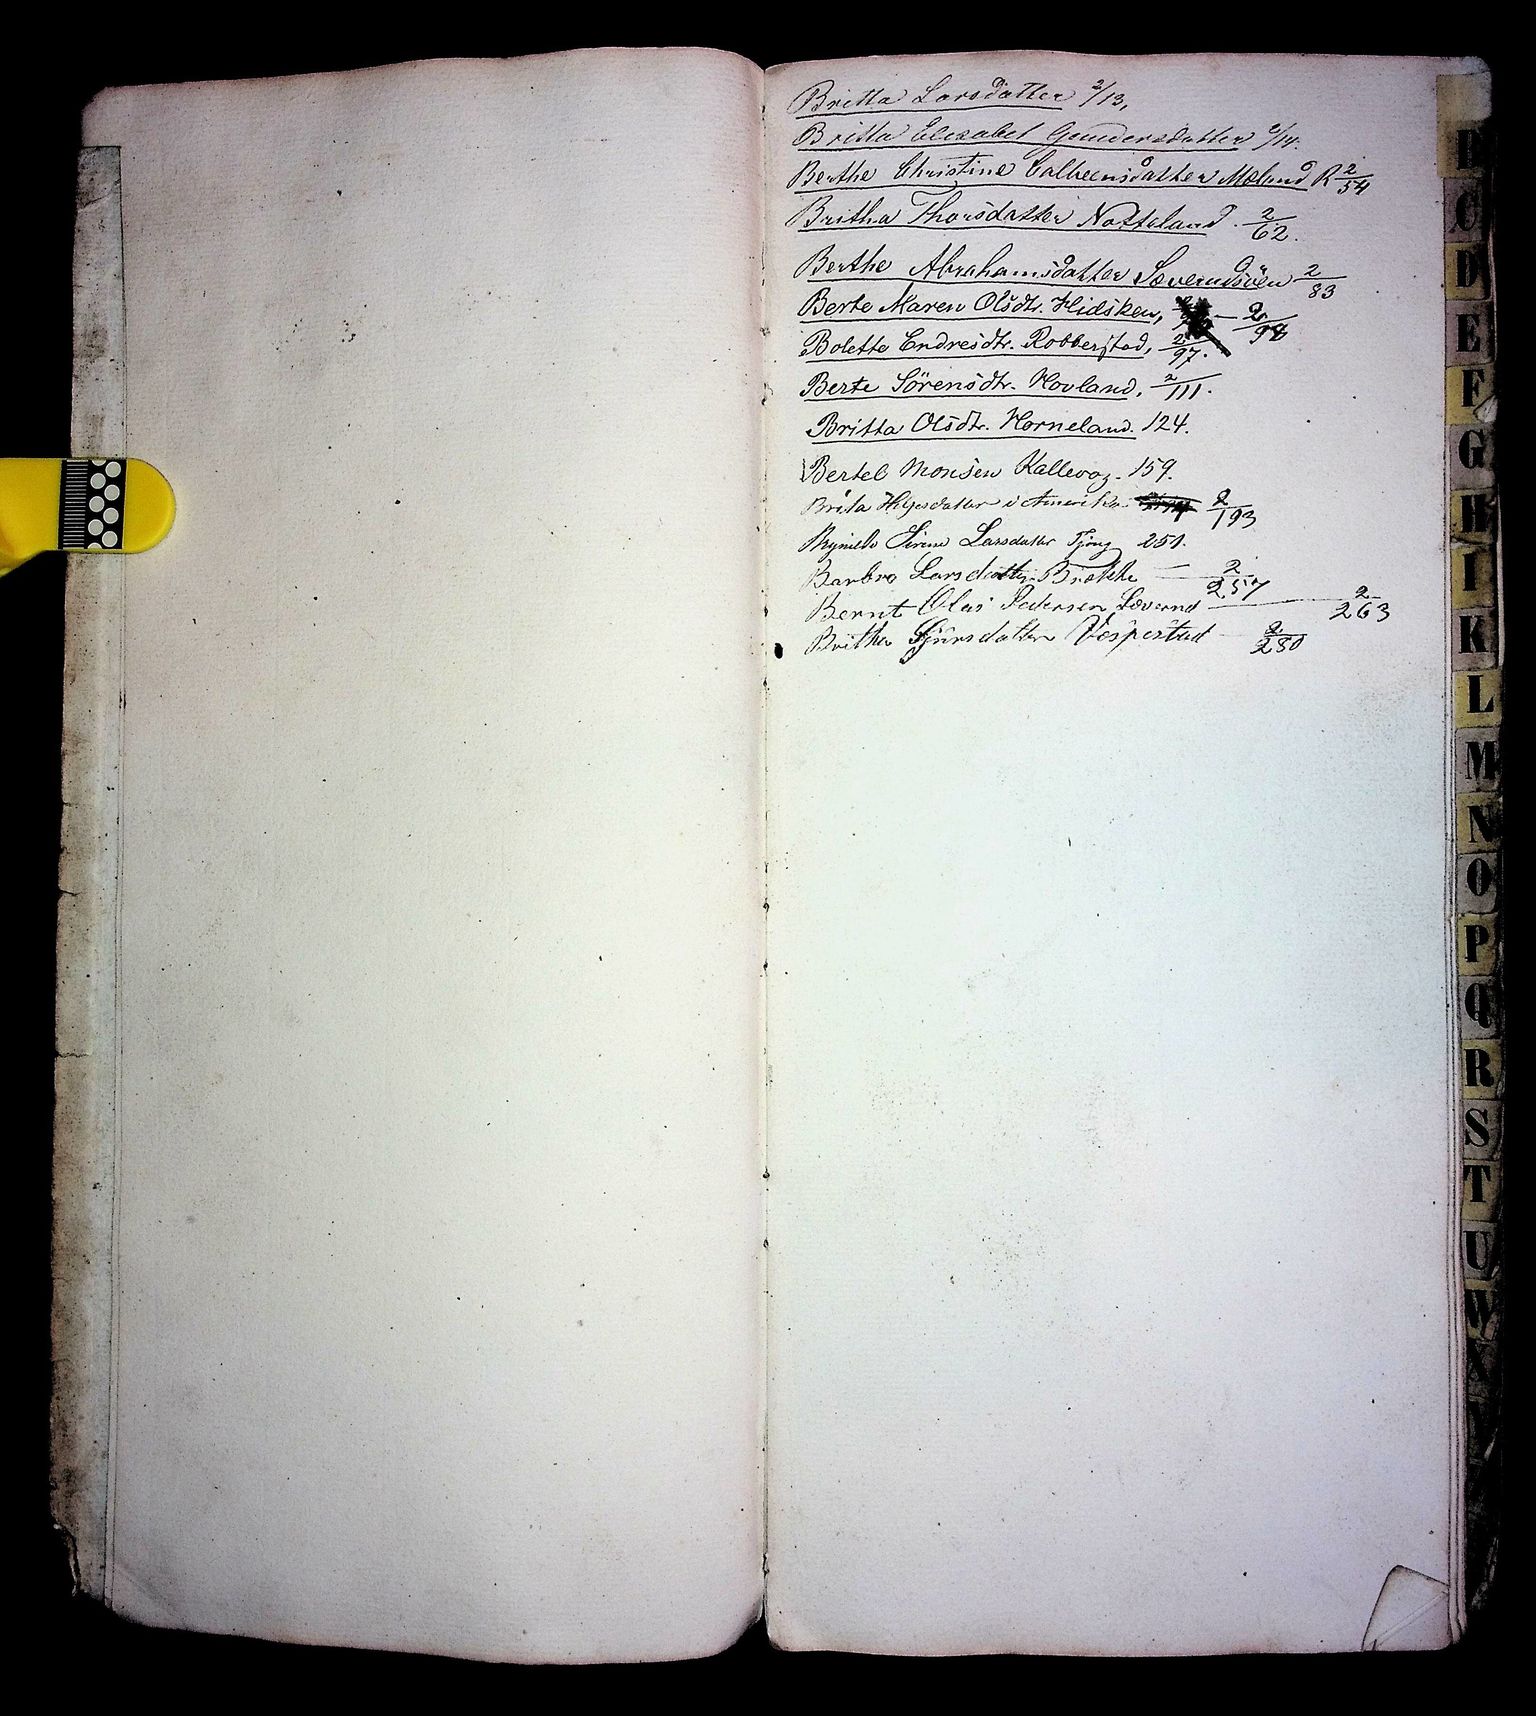 Britta Larsdatter 2/13.
Britta Elisabet Gundersdatter 2/14.
Berthe Christine Mæland R 2/54
Britha Thorsdatter Notteland. 2/62.
Berthe Abrahamsdatter 2/83
Berte Maren Olsdtr. Hidsken, — 2/98
Bolette Endresdtr. Robberstad, 2/97.
Berte Sörensdtr. Hovland, 2/111.
Britta Olsdtr. Horneland. 124.
Bertel Monsen Kallevag. 159.
Brita Helgesdatter i Amerika 2/193
Sirine Larsdatter Tjong 251.
Barbro Larsdatter Brekke — 2/257
Bernt Olai Pedersen Sævernd — 2/263
Britha Sjursdatter Vespestad — 2/280
B
C
D
E
F
G
H
I
K
L
M
N
O
P
Q
R
S
T
U
W
X